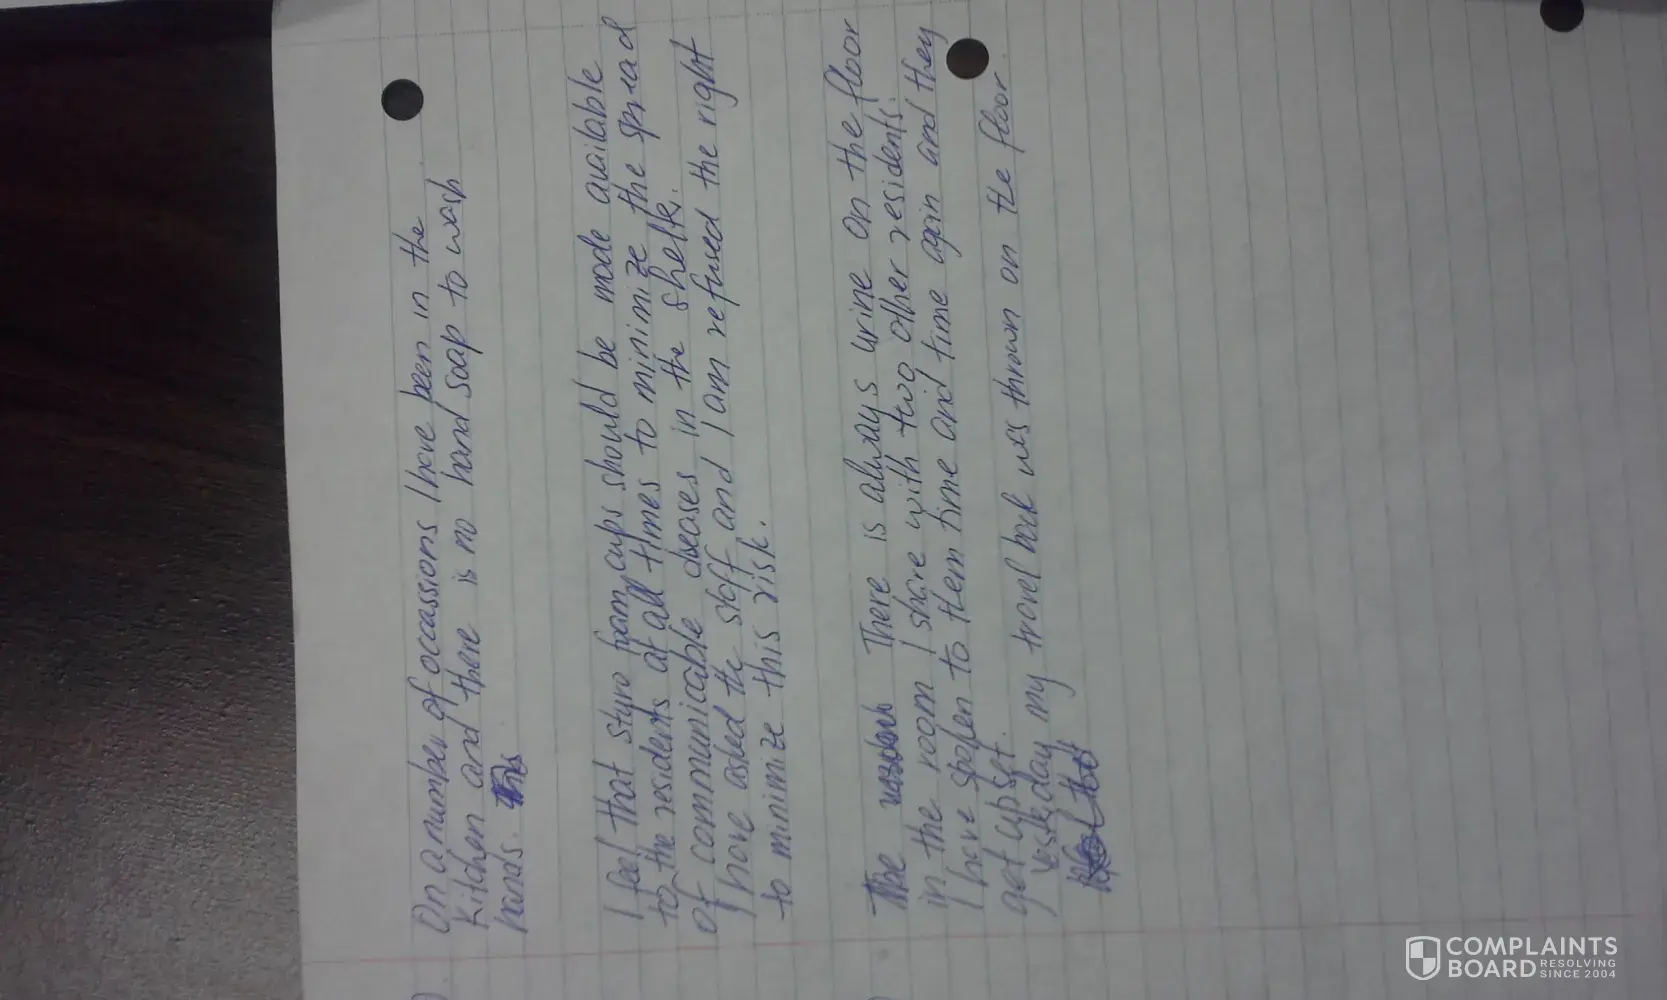 On a number of occassions I have been in the
Kitchen and there is no hand soap to wash
hands.
I feel that styro foam cups should be made available
to the residents at all times to minimize the spread
of communicable dseases in the shelte.
I have asked the staff and I am refused the right
to minimize this risk.
The There is always urine on the floor
in the room I share with two other residents.
I have spoken to them time and time again and they
get upset.
Yesterday my travel was thrown on the floor.
COMPLAINTS
BOARD RESOLVING
SINCE 2004